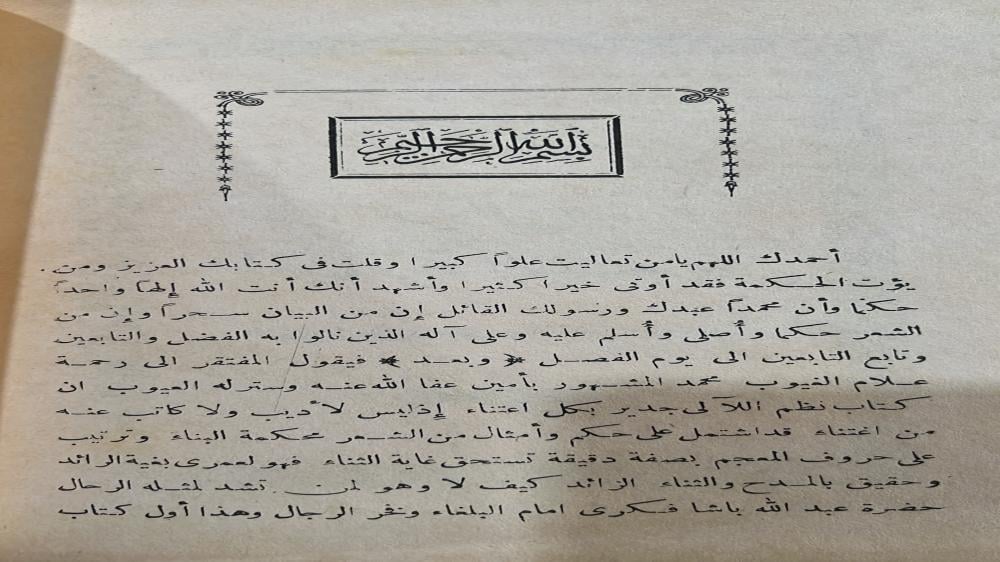 بسم الله الرحمن الرحيم
أحمدك اللهم يامن تعاليت علوا كبيرا وقلت فى كتابك العزيز ومن
يؤت الحكمة فقد أوتى خيرا كثيرا وأشهد أنك أنت الله إلها واحدا
حكما وأن محمدا عبدك ورسولك القائل إن من البيان سحرا وإن من
الشعر حكما وأصلى وأسلم عليه وعلى آله الذين نالوا به الفضل والتابعين
وتابع التابعين الى يوم الفصل ﴿ وبعد ﴾ فيقول المفتقر الى رحمة
علام الغيوب محمد المشهور بأمين عفا الله عنه وسترله العيوب ان
كتاب نظم اللآلى جدير بكل اعتناء إذليس لأديب ولا كاتب عنه
من اغتناء قداشتمل على حكم وأمثال من الشعر محكمة البناء وترتيب
على حروف المعجم بصفة دقيقة تستحق غاية الثناء فهو لعمرى بغية الرائد
وحقيق بالمدح والثناء الزائد كيف لا وهو لمن تشد لمثله الرحال
حضرة عبد الله باشا فكرى امام البلغاء وفخر الرجال وهذا أول كتاب